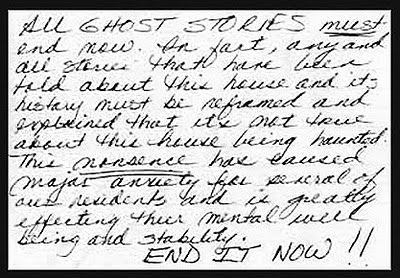 ALL GHOST STORIES must
end now. In fact, any and
all stories that have been
told about this house and its
history must be reframed and
explained that it's not true
about this house being haunted.
This nonsence has caused
major anxiety for several of
our residents and is greatly
effecting their mental well
being and stability.
END IT NOW !!